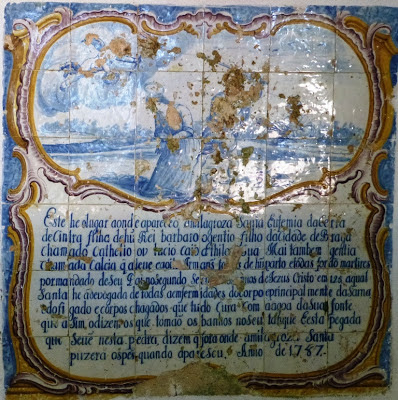 Este he o lugar aonde apareceo a milagroza Santa Eufemia da Serra
de Cintra filha de hũ Rei barbaro e gentio filho da Cidade de Braga
chamado Cathelio ou Lucio Caio Athilio Sua Mai tambem gentia
chamada Calcia q̃ a teve e a oito irmans todas de hũ parto e todas forão martires
por mandado de Seu Pai no segundo Se annos de Jezus Cristo em 122 a qual
Santa he advogada de todas as emfermidades do corpo e principalmente da Sarna
do figado e corpos chagados que tudo Cura Com a agoa da Sua fonte
que a Sim o dizem os que tomão os banhos no Seu tanque Esta pegada
que Se vê nesta pedra, dizem q̃ foi a onde a milagroza Santa
puzera os pés quando apareseu. Anno de 1787.